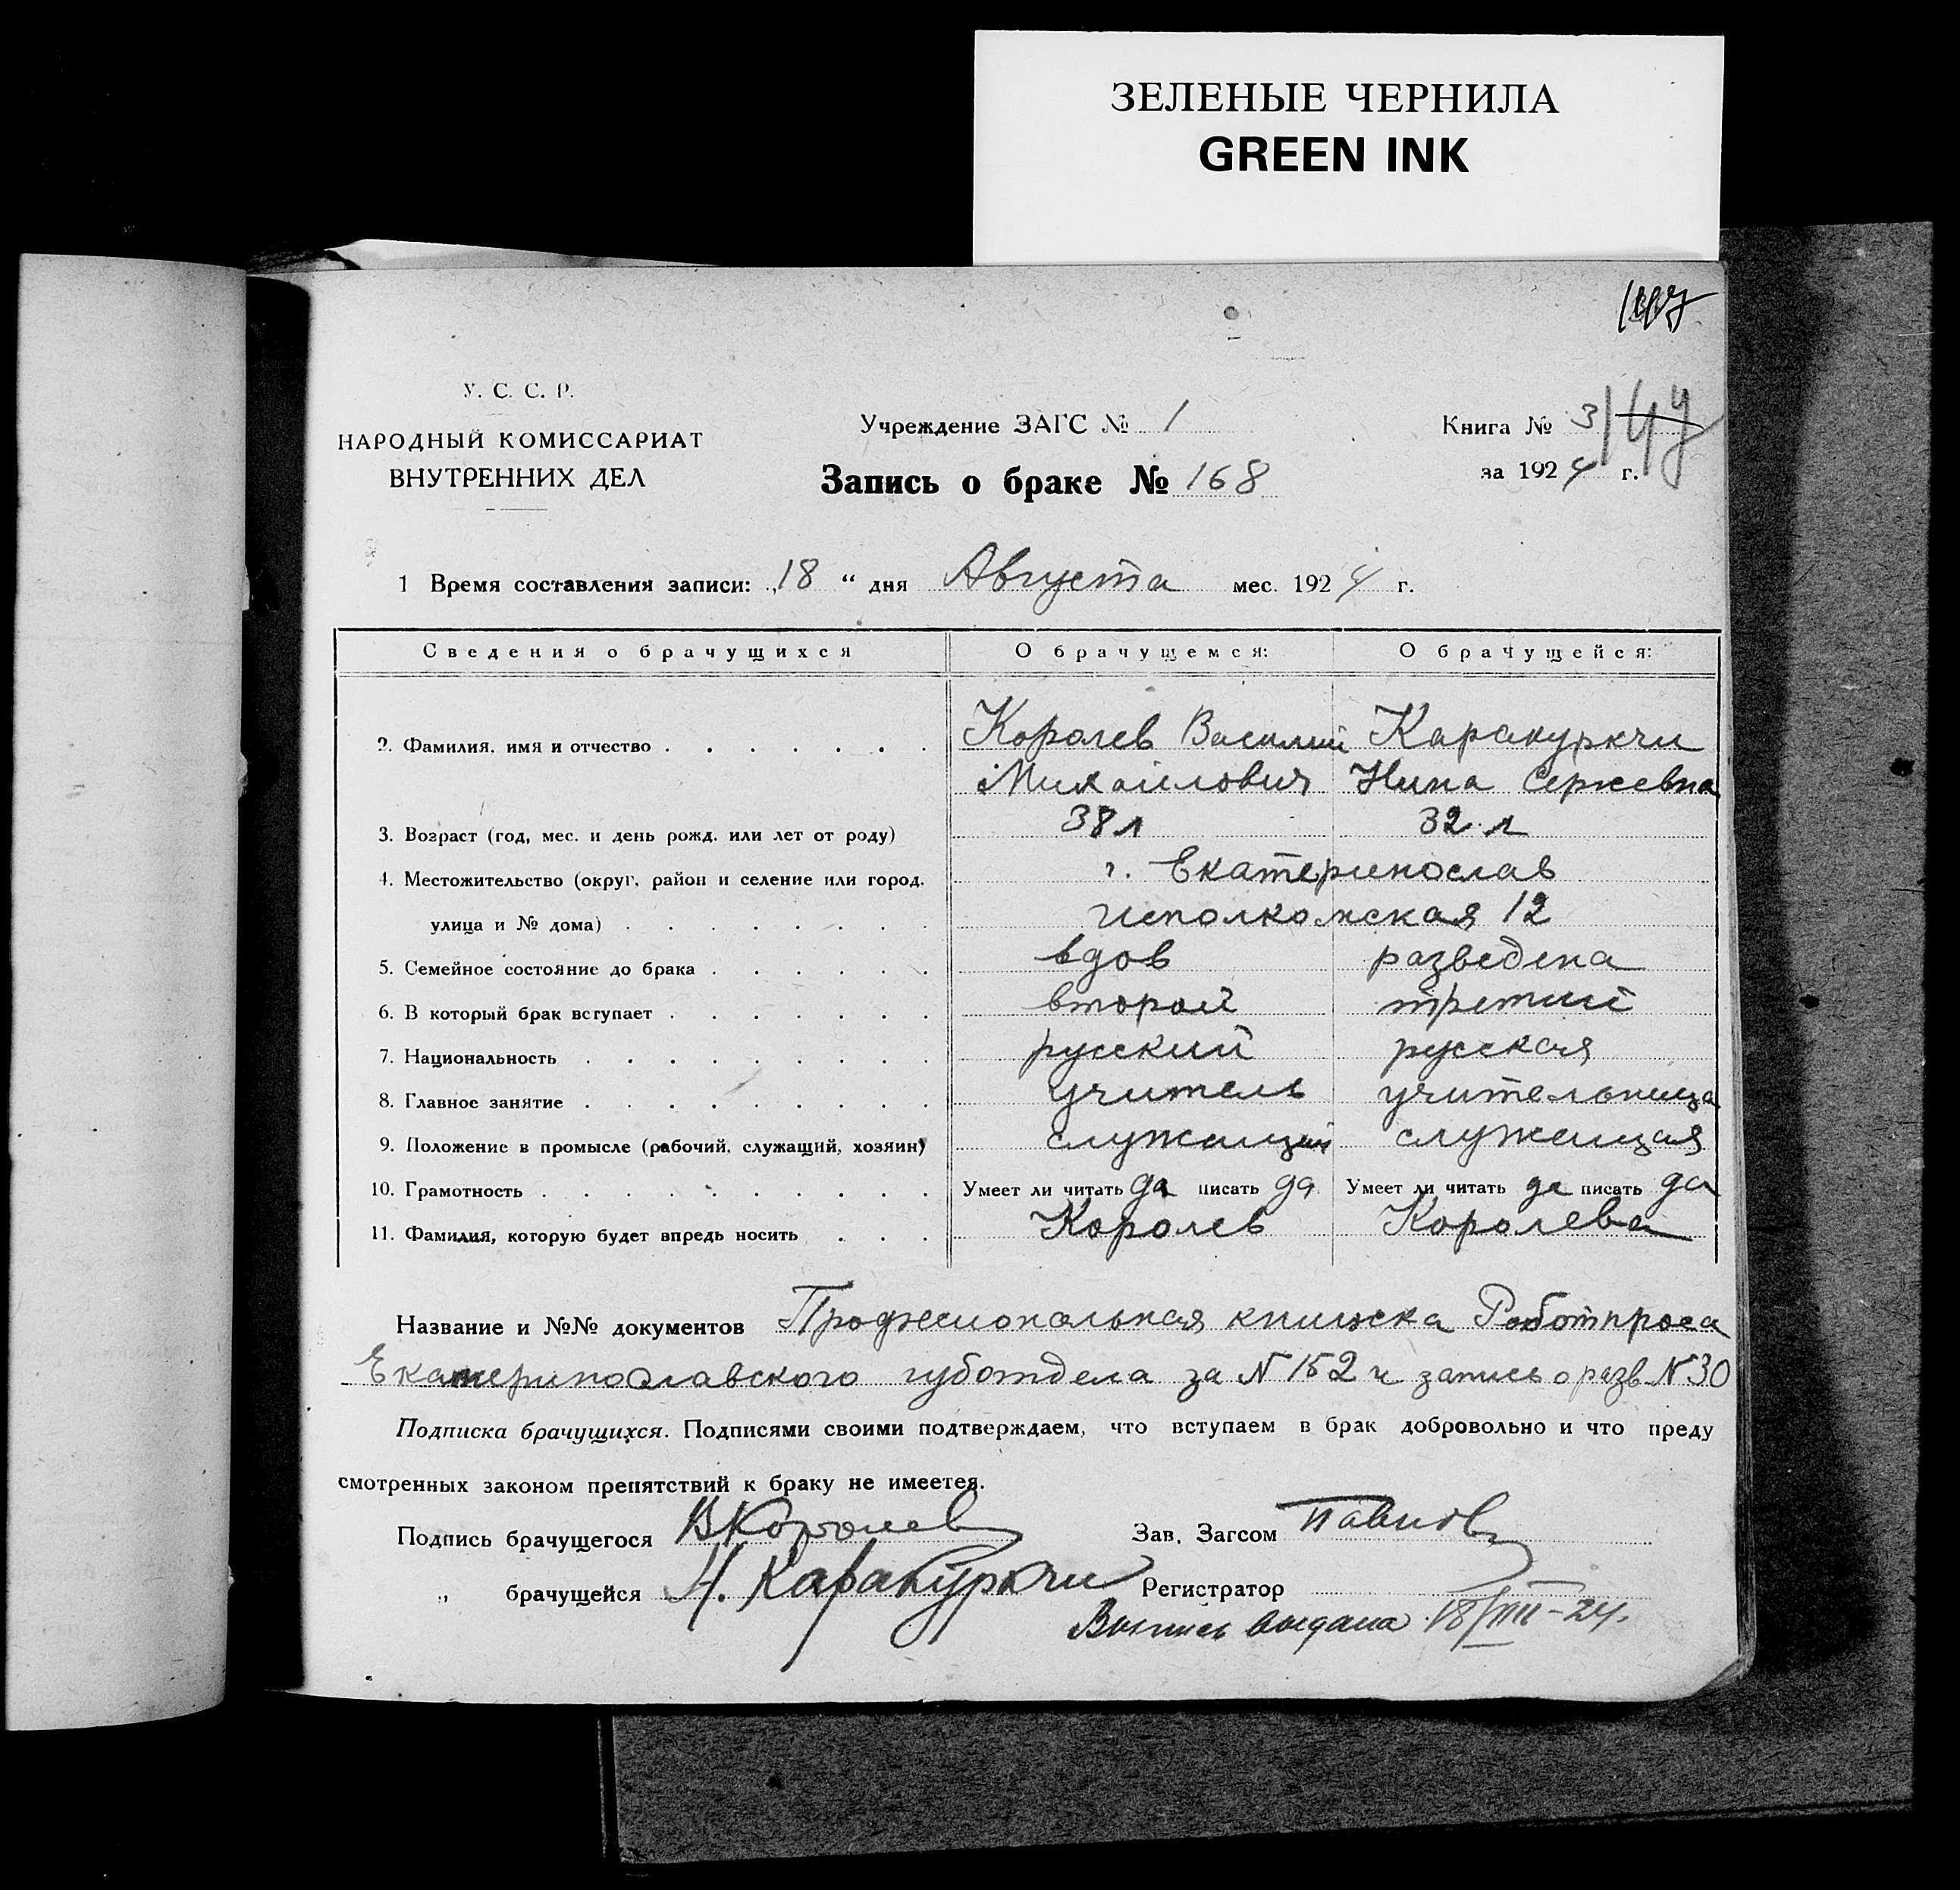 ЗЕЛЕНЫЕ ЧЕРНИЛА
GREEN INK
У. С. С. Р.
НАРОДНЫЙ КОМИССАРИАТ
ВНУТРЕННИХ ДЕЛ
Учреждение ЗАГС № 1
Запись о браке № 168
Книга № 3
за 1924 г.
1 Время составления записи: „18 “ дня Августа мес. 1924 г.
Сведения о брачущихся О брачущемся: О брачущейся:
2. Фамилия, имя и отчество Королев Василий Каракуркчи
Михайлович Нина Сергеевна
3. Возраст (год, мес. и день рожд. или лет от роду) 38 л 32 л
4. Местожительство (округ, район и селение или город, г. Екатеринослав
улица и № дома) Исполкомская 12
5. Семейное состояние до брака вдов разведена
6. В который брак вступает второй третий
7. Национальность русский русская
8. Главное занятие учитель учительница
9. Положение в промысле (рабочий, служащий, хозяин) служащий служащая
10. Грамотность Умеет ли читать да писать да Умеет ли читать да писать да
11. Фамилия, которую будет впредь носить Королев Королева
Название и №№ документов Професиональная книжска Работпроса
Екатеринославского губотдела за N 152 и запись о разв. N 30
Подписка брачущихся. Подписями своими подтверждаем, что вступаем в брак добровольно и что преду
смотренных законом препятствий к браку не имеется.
Подпись брачущегося ВКоролев Зав. Загсом Павлов
„ брачущейся Н. Каракуркчи Регистратор
Выпись выдана 18/VIII-24.